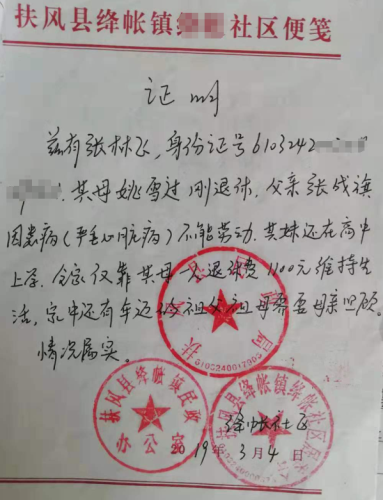 扶风县绛帐镇 社区便笺
证明
兹有张林飞,身份证号6103242
其母姚雪过刚退休,父亲张战旗
因患病(严重心脏病)不能劳动,其妹还在高中
上学,全家仅靠其母 退休费1100元维持生
活,家中还有年迈 祖父祖母需要母亲照顾。
情况属实。
绛帐社区
2019年3月4日
扶风县绛帐镇民政
办公室
扶风县绛帐镇绛帐社区居民
扶 局